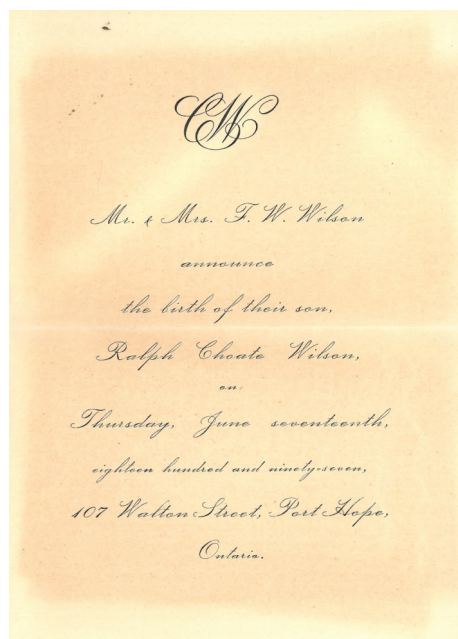 CW
Mr. & Mrs. F. W. Wilson
announce
the birth of their son,
Ralph Choate Wilson,
on
Thursday, June seventeenth,
eighteen hundred and ninety-seven,
107 Walton Street, Port Hope,
Ontario.